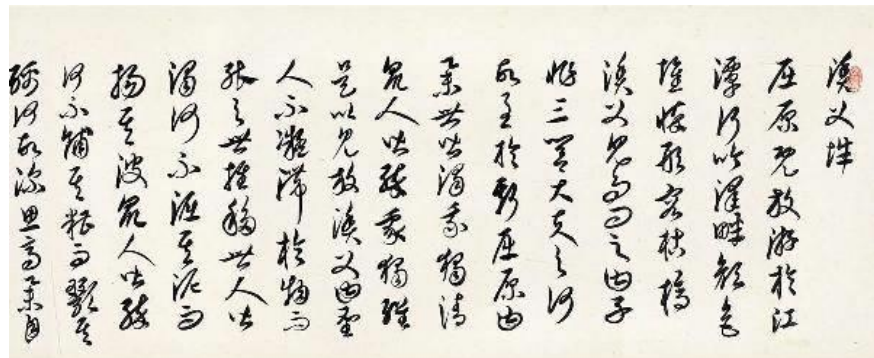 漁父辭
屈原既放游於江
潭行吟澤畔顏色
憔悴形容枯槁
漁父見而問之曰子
非三閭大夫與何
故至於斯屈原曰
舉世皆濁我獨清
衆人皆醉我獨醒
是以見放漁父曰聖
人不凝滯於物而
能與世推移世人皆
濁何不淈其泥而
揚其波衆人皆醉
何不餔其糟而歠其
醨何故深思高舉自